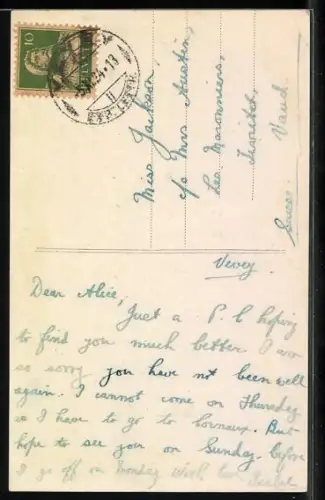 10
HELVETIA
EXP. LETTR.
Miss Jackson,
c/o Mrs Austin,
Les Maronniers,
Territet,
Vaud
Suisse
Vevey
Dear Alice,
Just a P.C. hoping
to find you much better. I am
so sorry you have not been well
again. I cannot come on Thursday
as I have to go to But
hope to see you on Sunday before
I go off on Monday With love